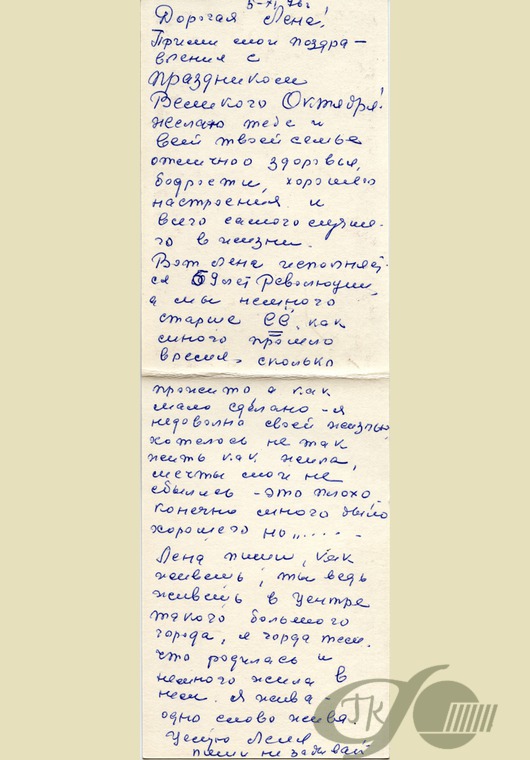 5-XI 76г
Дорогая Лена!
Прими мои поздра-
вления с
праздником
Великого Октября!
желаю тебе и
всей твоей семье
отличного здоровья,
бодрости, хорошего
настроения и
всего самого лучше-
го в жизни.
Вот Лена исполняет-
ся 59 лет Революции,
а мы немного
старше её, как
много прошло
время, сколько
прожито а как
мало сделано - я
недовольна своей жизнью
хотелось не так
жить как жила,
мечты мои не
сбылись - это плохо,
конечно много было
хорошего но,.....
Лена пиши, как
живешь, ты ведь
живешь в центре
такого большого
города, я горда тем.
что родилась и
немного жила в
нем. Я жива -
одно слово жива.
Целую
пиши не забывай
ГК